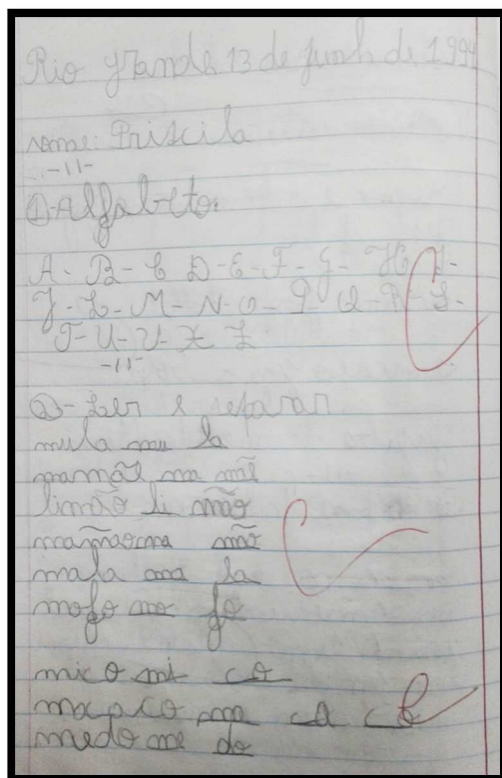 Rio grande 13 de junh de 1994
nome: Priscila
-11-
1-Alfabeto.
A- B- C D- E- F- G- H I-
J- L- M- N- O- P Q- R- S-
T- U- V- X Z
-11-
2- Ler e separar
mula mu la
mamãe ma mãe
limão li mão
mamão ma mão
mala ma la
mofo mo fo
mico mi co
macaco ma ca co
medo me do